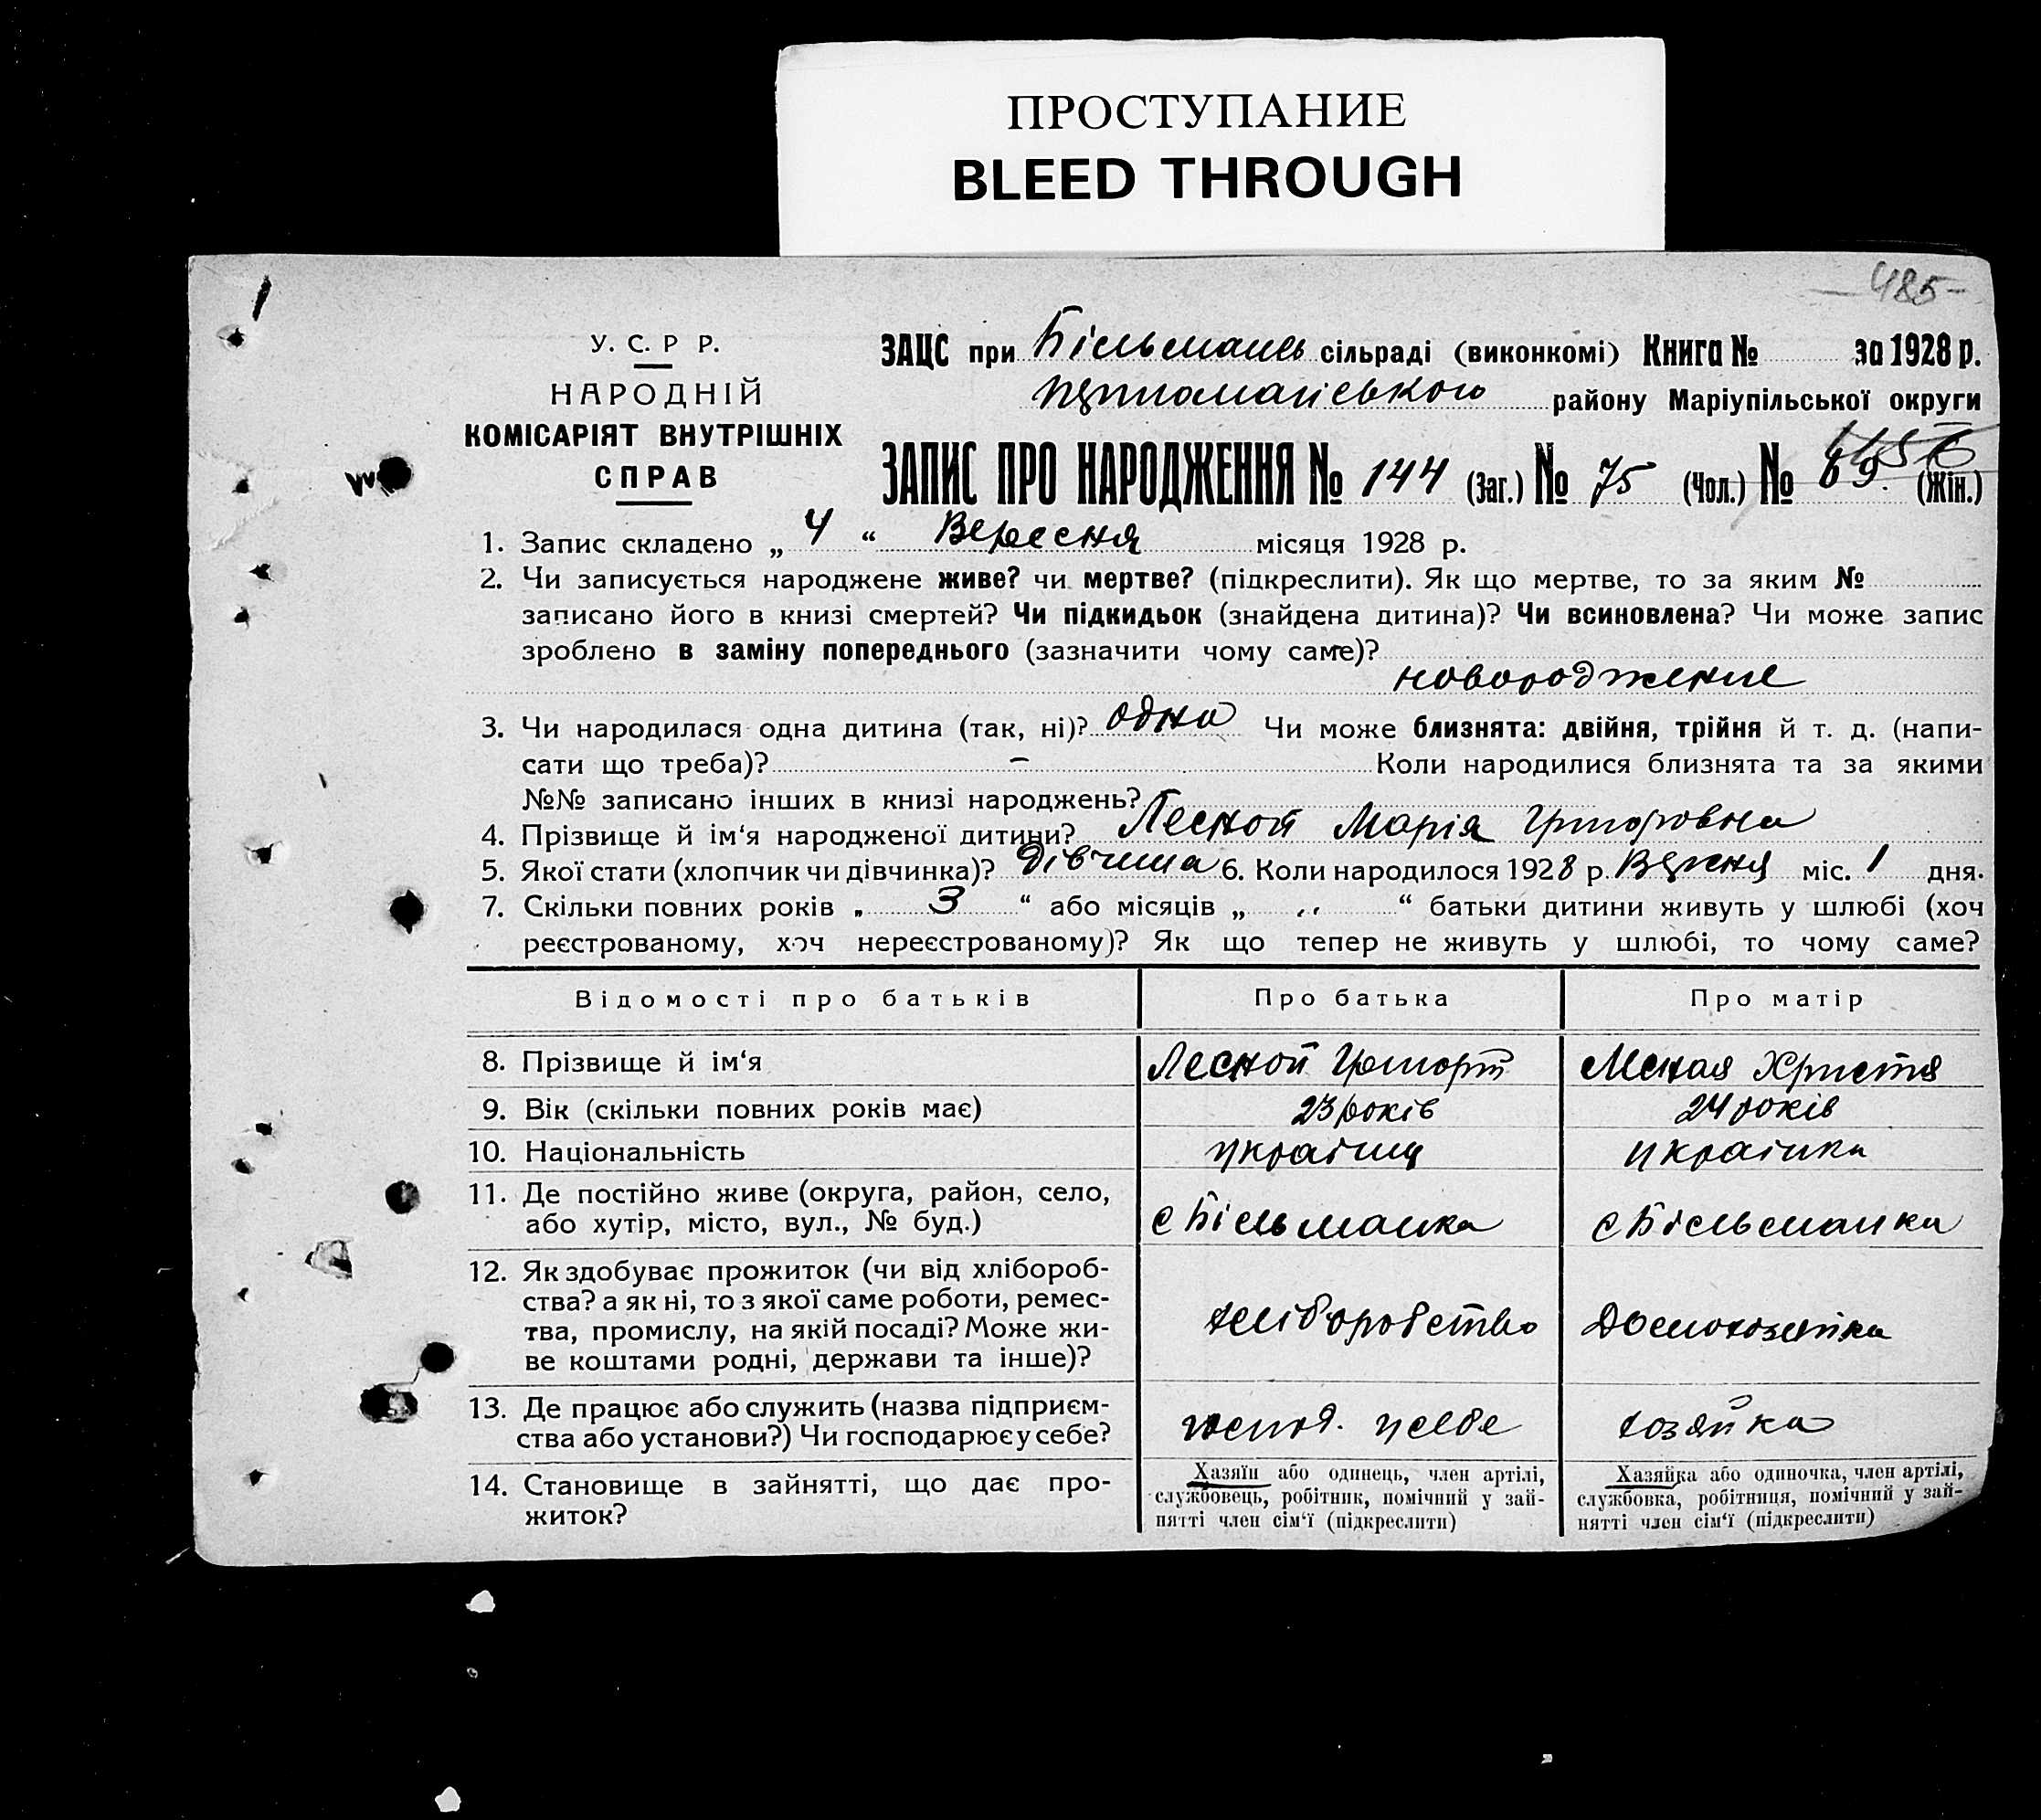 ПРОСТУПАНИЕ
BLEED THROUGH
485-
У. С. Р Р.
НАРОДНІЙ
КОМІСАРІЯТ ВНУТРІШНІХ
СПРАВ
ЗАЦС при Більмансь сільраді (виконкомі) Книга № за 1928 р.
району Маріупільської округи
ЗАПИС ПРО НАРОДЖЕННЯ № 144 (Заг.) № 75 (Чол.) № 69. (Жін.)
1. Запис складено „ 4 “ Вересня місяця 1928 р.
2. Чи записується народжене живе? чи мертве? (підкреслити). Як що мертве, то за яким №
записано його в книзі смертей? Чи підкидьок (знайдена дитина)? Чи всиновлена? Чи може запис
зроблено в заміну попереднього (зазначити чому саме)?
новородженне
3. Чи народилася одна дитина (так, ні)? одна Чи може близнята: двійня, трійня й т. д. (напи-
сати що треба)? – Коли народилися близнята та за якими
№№ записано інших в книзі народжень?
4. Прізвище й ім‘я народженої дитини? Лесной Марія Григоровна
5. Якої стати (хлопчик чи дівчинка)? дівчина 6. Коли народилося 1928 р. Вересня міс. 1 дня.
7. Скільки повних років „ 3 “ або місяців „ “ батьки дитини живуть у шлюбі (хоч
реєстрованому, хоч нереєстрованому)? Як що тепер не живуть у шлюбі, то чому саме?
Відомості про батьків Про батька Про матір
8. Прізвище й ім‘я Лесной Григорій Лесная Христя
9. Вік (скільки повних років має) 23 років 24 років
10. Національність українц українка
11. Де постійно живе (округа, район, село,
або хутір, місто, вул., № буд.) с Більманка с Більманка
12. Як здобуває прожиток (чи від хлібороб-
ства? а як ні, то з якої саме роботи, ремес-
тва, промислу, на якій посаді? Може жи-
ве коштами родні, держави та інше)? хліборобство Домохозяйка
13. Де працює або служить (назва підприєм-
ства або установи?) Чи господарює у себе? господ. у себе хозяйка
14. Становище в зайнятті, що дає про-
житок?
Хазяїн або одинець, член артілі,
службовець, робітник, помічний у зай-
нятті член сім‘ї (підкреслити)
Хазяйка або одиночка, член артілі,
службовка, робітниця, помічний у зай-
нятті член сім‘ї (підкреслити)